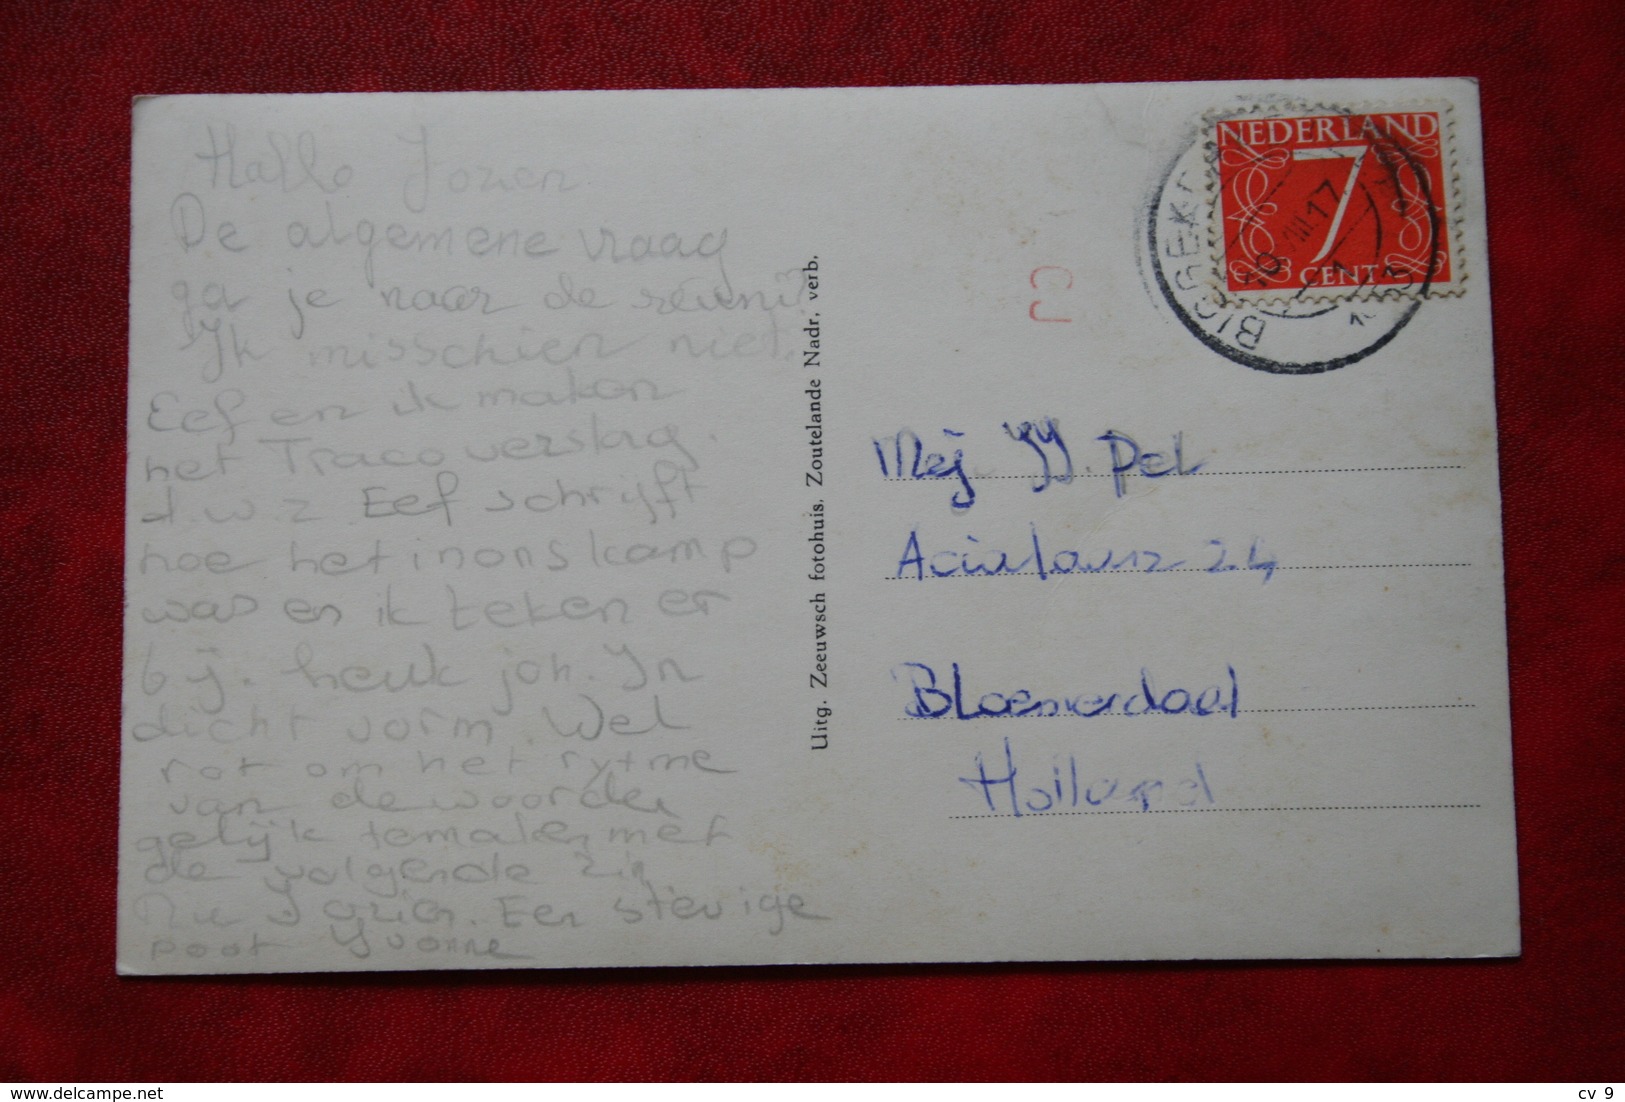 Hallo Jozien.
De algemene vraag
ga je naar de reünie?
Ik misschien niet.
Eef en ik maken
het Traco verslag.
d.w.z Eef schrijft
hoe het in ons kamp
was en ik teken er
bij. heuk joh. In
dicht vorm. Wel
rot om het rytme
van de woorden
gelijk te maken met
de volgende zin
Nu Jozien. Een stevige
poot Yvonne
Uitg. Zeeuwsch fotohuis. Zoutelande Nadr. verb.
NEDERLAND
7
CENT
BIGGEKE
CJ
Mej JJ. Pel
24
Bloemendaal
Holland
cv 9